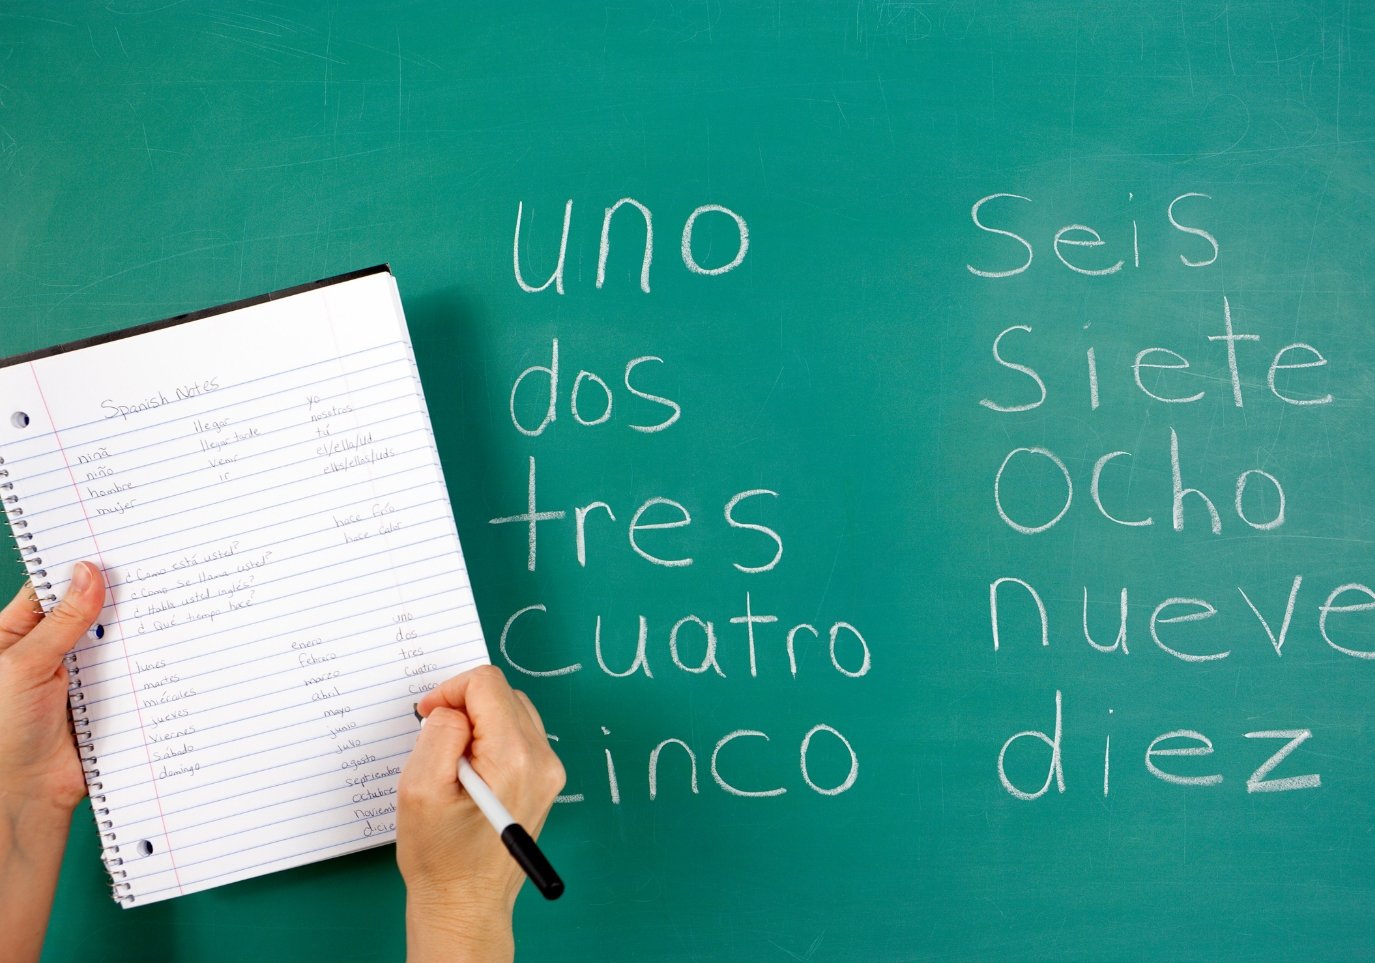 Spanish Notes
niñã llegar yo
niño llegar tarde nosotros
hombre venir tú
mujer ir el/ella/ud.
ells/ellas/uds
hace frío
hace calor
¿Como está usted?
¿Como se llama usted?
¿Habla usted inglés?
¿Qué tiempo hace?
lunes enero uno
martes febraro dos
miércoles marzo tres
jueves abril cuatro
viernes mayo cinco
sábado junio
domingo julio
agosto
septiembre
octubre
noviemb
dicie
uno
dos
tres
cuatro
cinco
seis
siete
ocho
nueve
diez